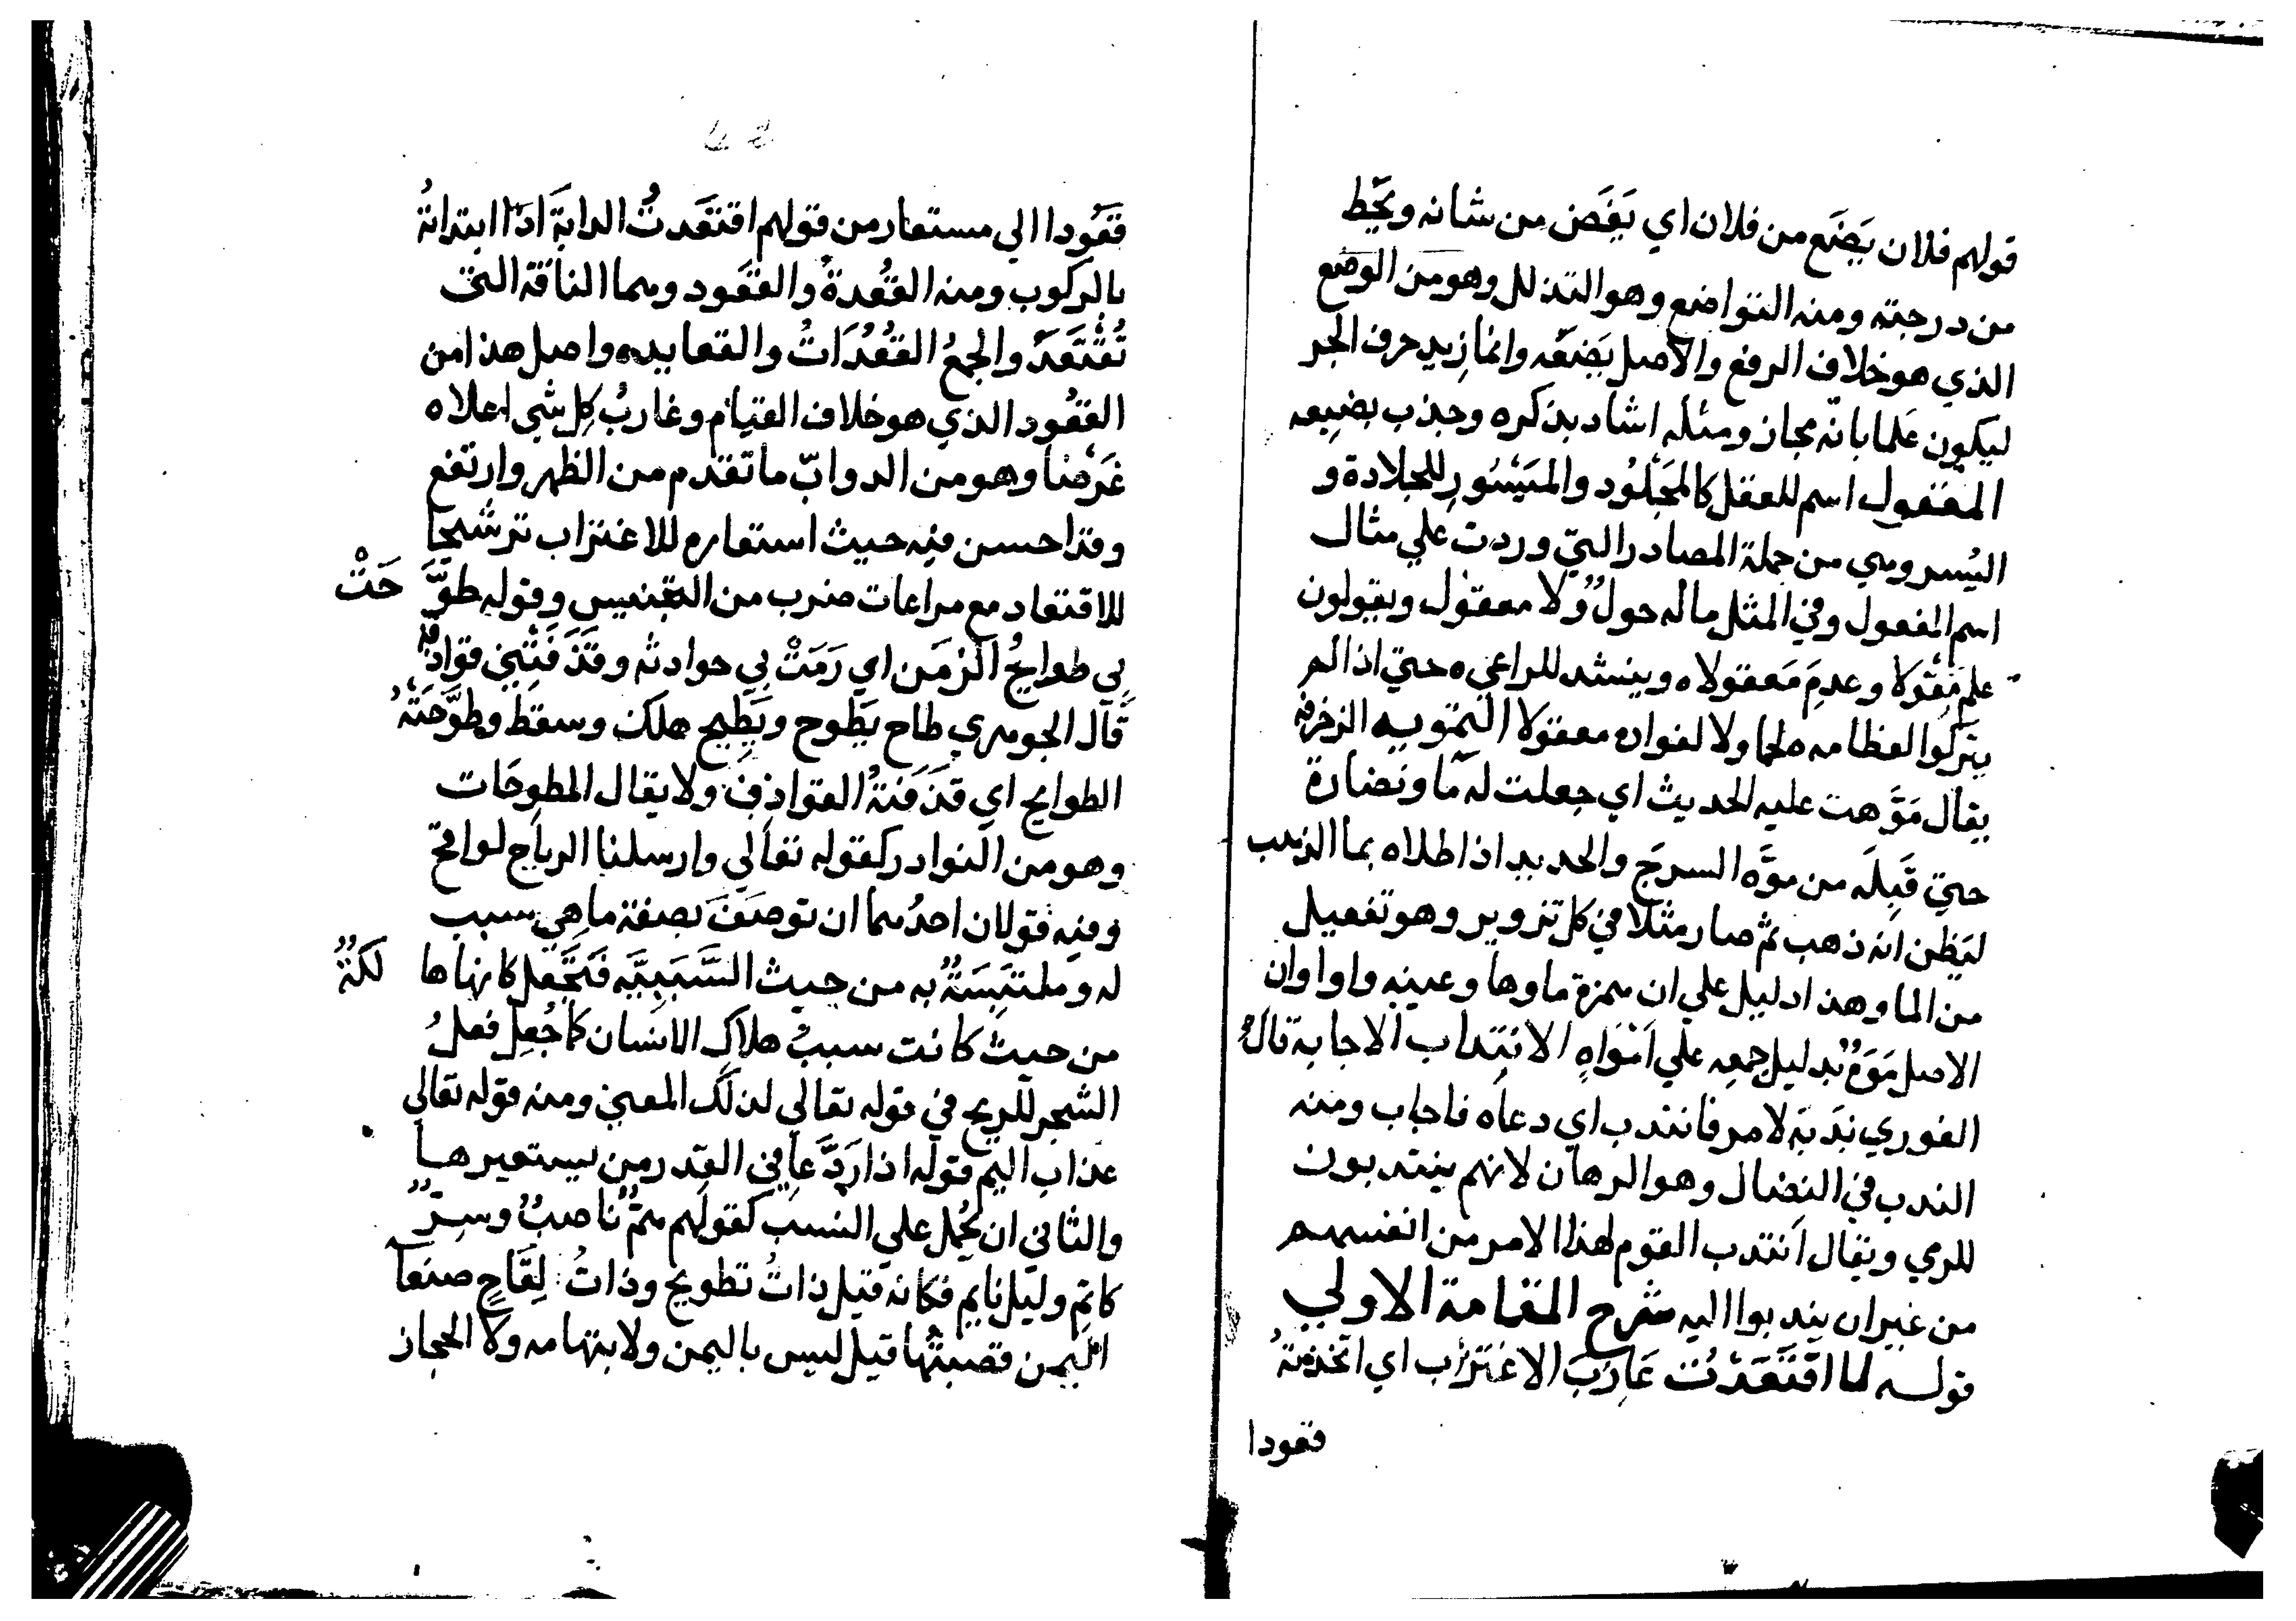 قولهم فلان يَضَع من فلان اي يَغِضّ من شانه ويحُّط
من درجته ومنه التواضع وهو التذلل وهو من الوضع
الذي هو خلاف الرفع والاصل يَضَعه وانما زيد حرف الجر
ليكون عَلما بانه مجاز ومثله اشاد بذكره وجذب بضبعه
المعقول اسم للعقل كالمَجْلُود والمَيْسُور للجلادة و
اليُسر وهي من جملة المصادر التي وردت علي مثال
اسم المفعول وفي المثل ماله حولٌ ولا معقول ويقولون
علم مَقْولا وعدِمَ مَعقولا ه وينشد للراعي ه حتي اذا لم
يتركوا لعظامه ه لحما ولا لفواده معقولا التمويه الزخرفة
يقال مَوَّهت عليه الحديث اي جعلت له مآ ونضارة
حتي قَبِلَه من موَّه السرجَ والحديد اذا طلاه بما الذهب
ليَظن انه ذهب ثم صار مثلا في كل تزوير وهو تفعيل
من الما وهذا دليل علي ان همزة ما وها وعينه واوا وان
الاصل مَوَهٌ بدليل جمعه علي اَمْوَاهٍ الانتِداب الاجابة قال
الغوري نَدَبَه لامر فانتدب اي دعاه فاجاب ومنه
الندب في النِضال وهو الرهان لانهم ينتدبون
للرمي ويقال اَنتدب القوم لهذا الامر من انفسهم
من غير ان يندبوا اليه شرح المقامة الاولي
قوله لما اقْتَعَدْتُ غَارِبَ الاغتِرَاب اي اتخذته
قعودا
قَعُودا الي مستعار من قولهم اقتعَدتُ الدابةَ اذا ابتداتهُ
بالركوب ومنه القُعْدةُ والقَعُود وهما الناقة التي
تُقْتَعَدُ والجمعُ القُعُدَاتُ والقعايد ه واصل هذا من
القعُود الذي هو خلاف القيام وغاربُ كل شي اعلاه
عَرضا وهو من الدوابّ ما تقدم من الظهر وارتفع
وقد احسن فيه حيث استعاره للاغتراب ترشيحا
للاقتعاد مع مراعات ضرب من التجنيس وقوله طوَّحَتْ
بي طوايحُ الزمَن اي رَمَتْ بي حوادثه وقذفتْني قواذفه
قال الجوهري طاح يَطوح ويَطِيح هلك وسقط وطوَّحَتْهُ
الطوايح اي قذفَتهُ القواذِف ولا يقال المطوِحَات
وهو من النوادر كقوله تعالي وارسلنا الرياح لواقح
وفيه قولان احدُهما ان توصَف بصفة ما هي سبب
له وملتبَسَةٌ به من حيث السَّبَبِيَّه فَتَجْعل كانها هالكَةٌ
من حيث كانت سببُ هلاك الانسان كما جُعِل فعلُ
الشجر للريح في قوله تعالي لذلك المعني ومنه قوله تعالي
عذاب اليم قوله اذا رَدَّ عافي القِدر من يستعيرها
والثاني ان يُحمل علي النسب كقولهم همٌّ ناصبٌ وسِرٌّ
كاتم وليل نايم فكانه قيل ذاتُ تطويح وذاتُ لِقَاحٍ صنعآ
اليمن قصبتُها قيل ليس باليمن ولا بتهامه ولا الحجاز